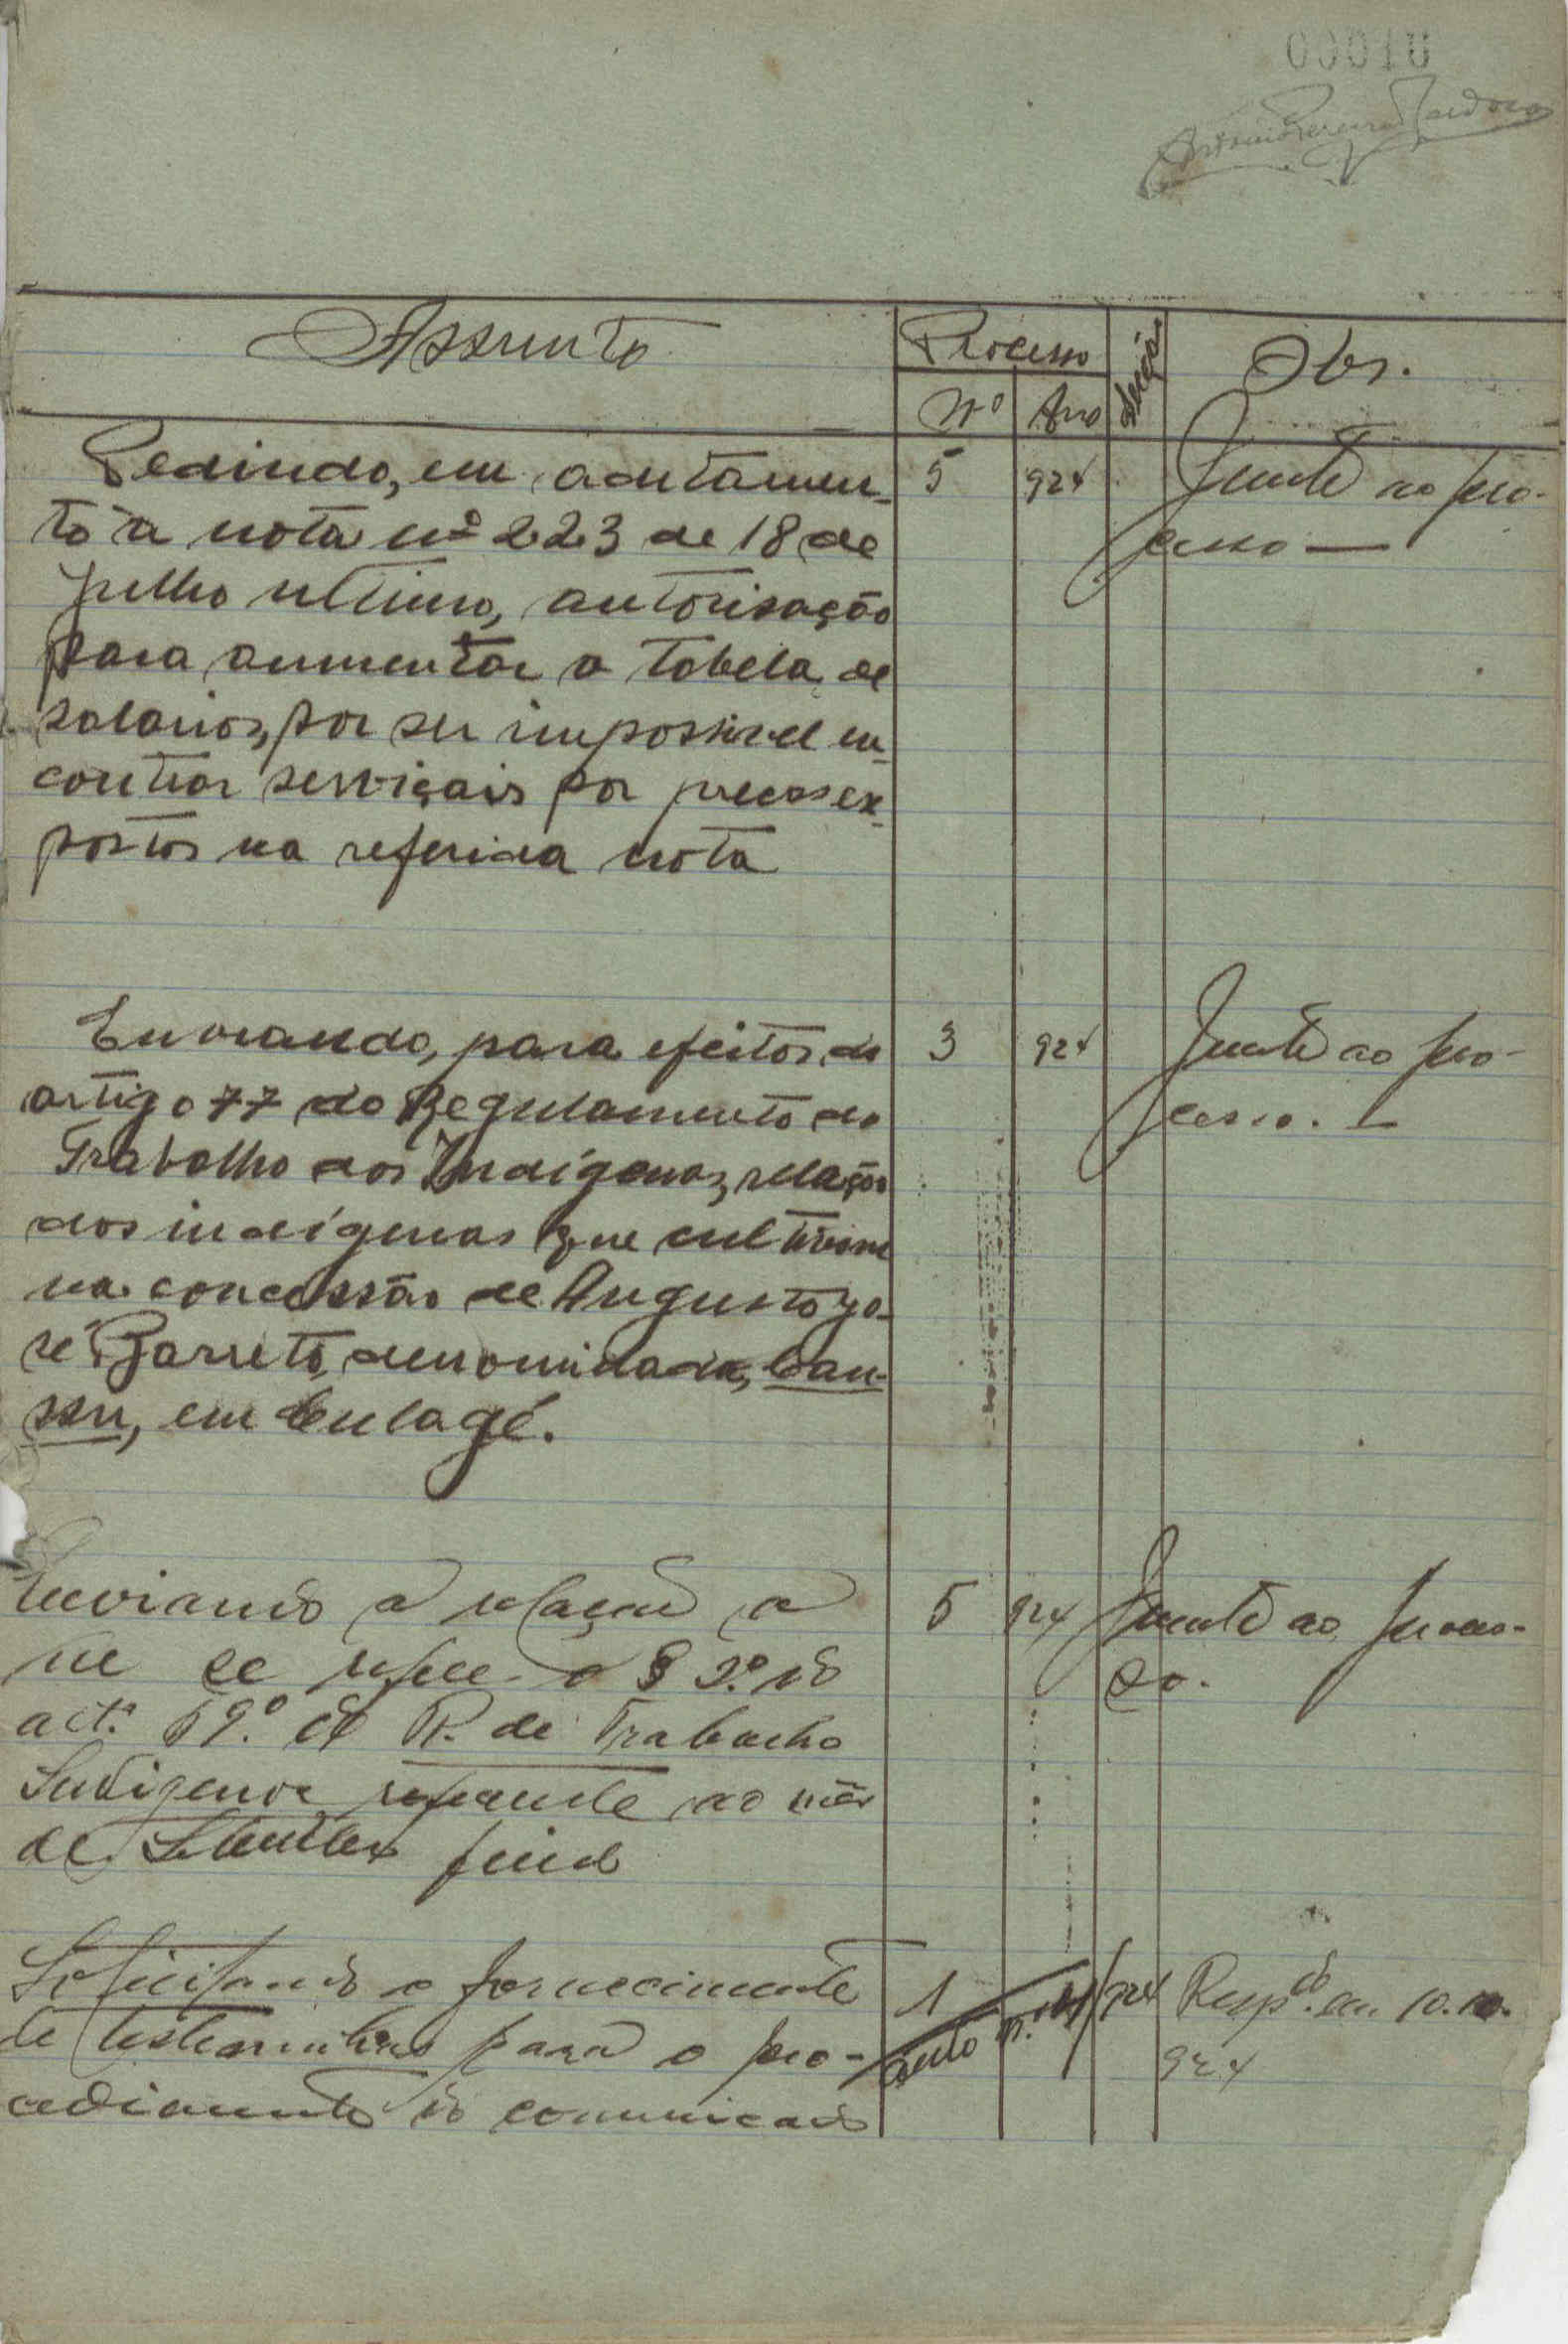 00010
Antonio Pereira Cardoso
Assunto
Processo
Nº
Ano
Secção
Obs.
Pedindo, em aditamen-
to à nota nº 223 de 18 de
Julho ultimo, autorisação
para aumentar a tabela de
salarios, por ser impossivel en-
contrar serviçais por preços ex-
postos na referida nota
5
924
Junte ao pro-
cesso —
Enviando, para efeitos do
artigo 77 do Regulamento do
Trabalho dos Indígenas, relação
dos indígenas que cultivam
na concessão de Augusto Jo-
sé Barreto, denominada,
em
3
924
Junte ao pro-
cesso. —
Enviando a relação a
que se refere o § 2.º do
art.º 59.º do R. de Trabalho
Indigena referente ao mês
de Setembro findo
5
924
Junte ao proces-
so.
Solicitando o fornecimento
de testemunhas para o pro-
cedimento do comunicado
1
auto n.º
924
Resp.do em 10.10.
924